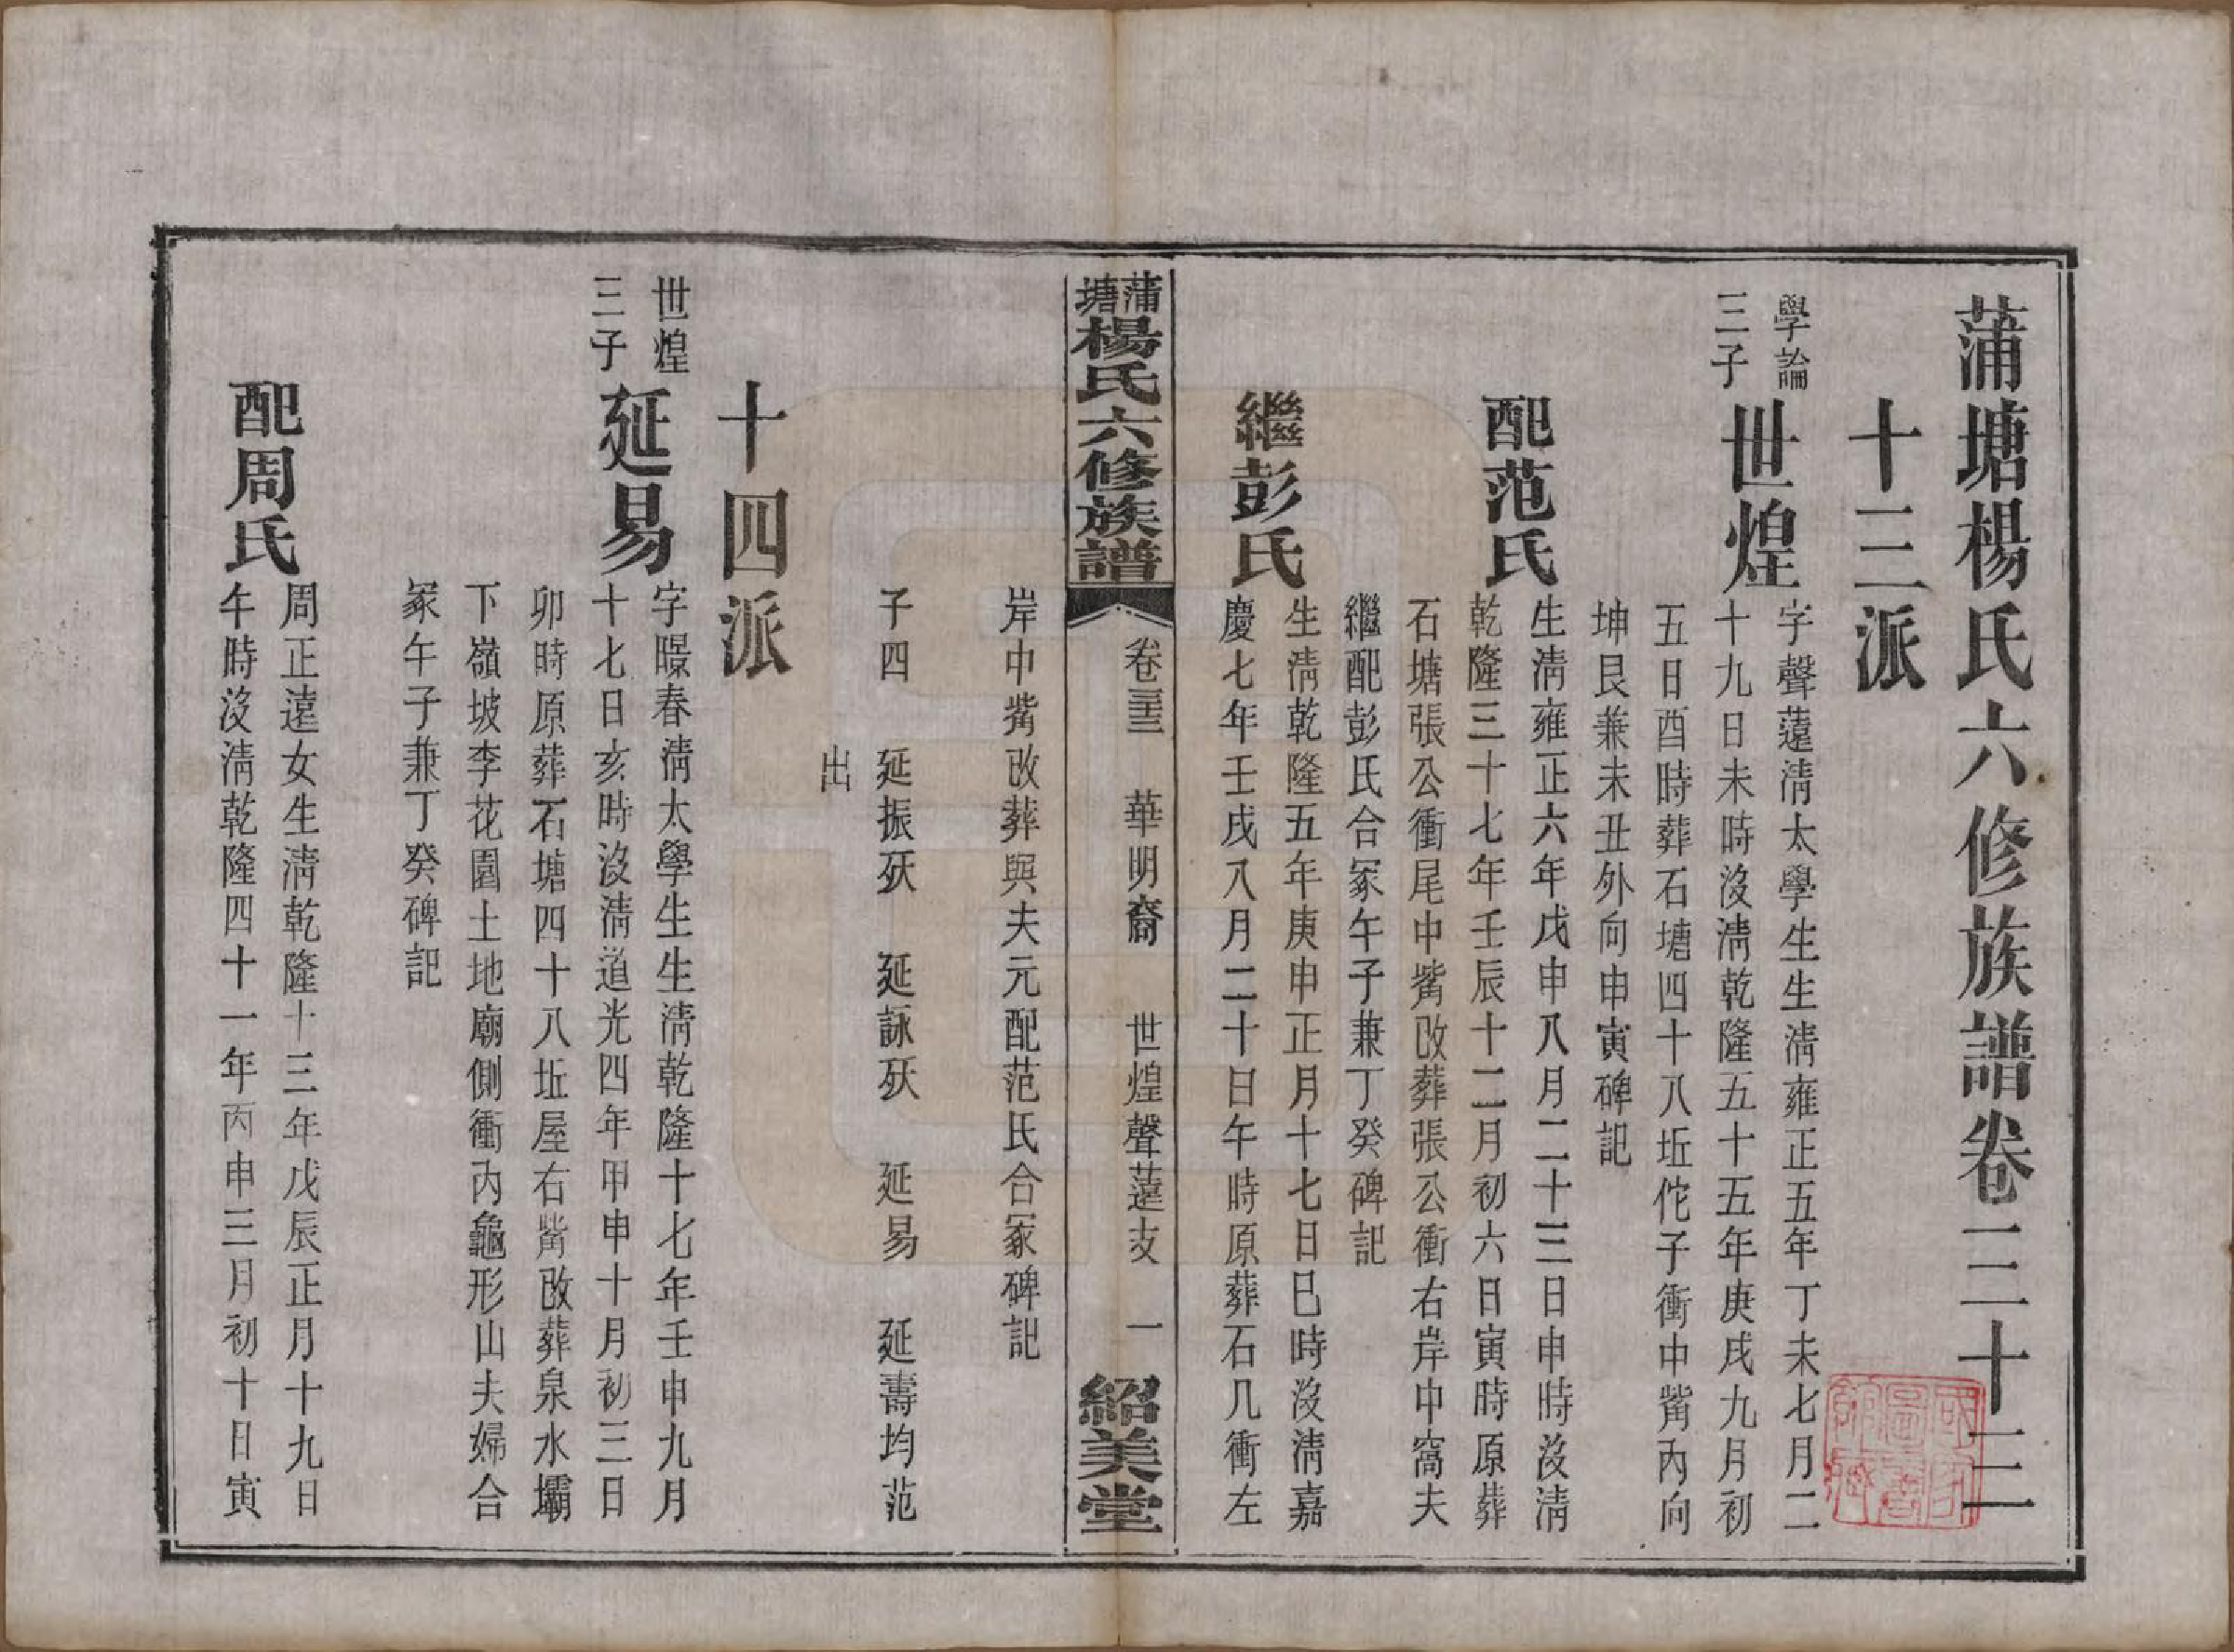 蒲塘楊氏六修族譜卷三十三
十三派
學論
三子
世煌
字聲薳淸太學生生淸雍正五年丁未七月二
十九日未時沒淸乾隆五十五年庚戌九月初
五日酉時葬石塘四十八坵佗子衝中觜內向
坤艮兼未丑外向申寅碑記
配范氏
生淸雍正六年戊申八月二十三日申時沒淸
乾隆三十七年壬辰十二月初六日寅時原葬
石塘張公衝尾中觜改葬張公衝右岸中窩夫
繼配彭氏合冢午子兼丁癸碑記
繼彭氏
生淸乾隆五年庚申正月十七日巳時沒淸嘉
慶七年壬戌八月二十日午時原葬石几衝左
蒲塘楊氏六修族譜
卷三十三 華明裔 世煌聲薳支 一
紹美堂
岸中觜改葬與夫元配范氏合冢碑記
子四 延振殀 延詠殀 延易 延壽均范
出
十四派
世煌
三子
延易
字暻春淸太學生生淸乾隆十七年壬申九月
十七日亥時沒淸道光四年甲申十月初三日
卯時原葬石塘四十八坵屋右觜改葬泉水壩
下嶺坡李花園土地廟側衝內龜形山夫婦合
冢午子兼丁癸碑記
配周氏
周正遠女生淸乾隆十三年戊辰正月十九日
午時沒淸乾隆四十一年丙申三月初十日寅